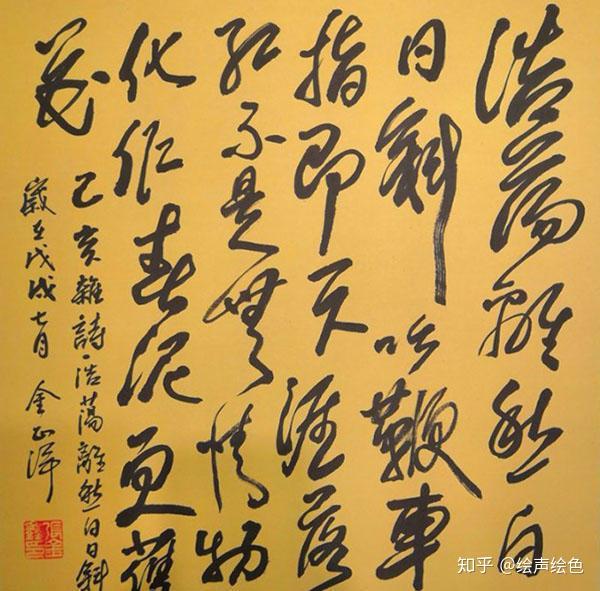 浩蕩離愁白
日斜吟鞭東
指即天涯落
紅不是無情物
化作春泥更護
花
己亥雜詩·浩蕩離愁白日斜
歲在戊戌七月 金正
知乎 @绘声绘色